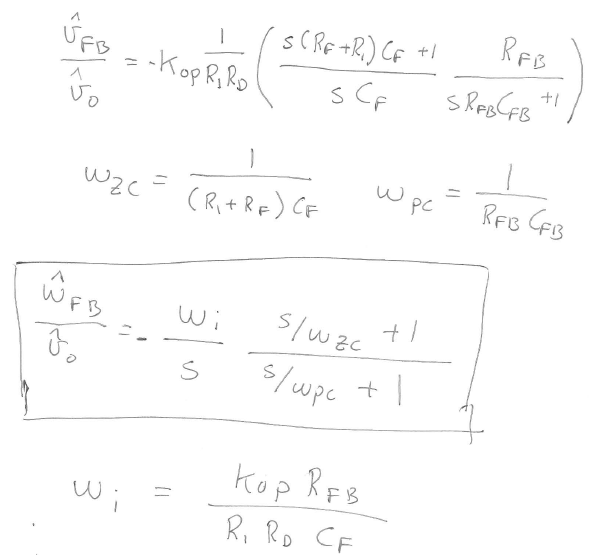 v̂_FB / v̂_o = -K_op 1/(R_1 R_D) ( (s(R_F+R_1)C_F +1)/(s C_F) R_FB/(sR_FB C_FB +1) )
w_zc = 1/((R_1+R_F)C_F) w_pc = 1/(R_FB C_FB)
ŵ_FB / v̂_o = - w_i/s (s/w_zc +1)/(s/w_pc + 1)
w_i = K_op R_FB/(R_1 R_D C_F)